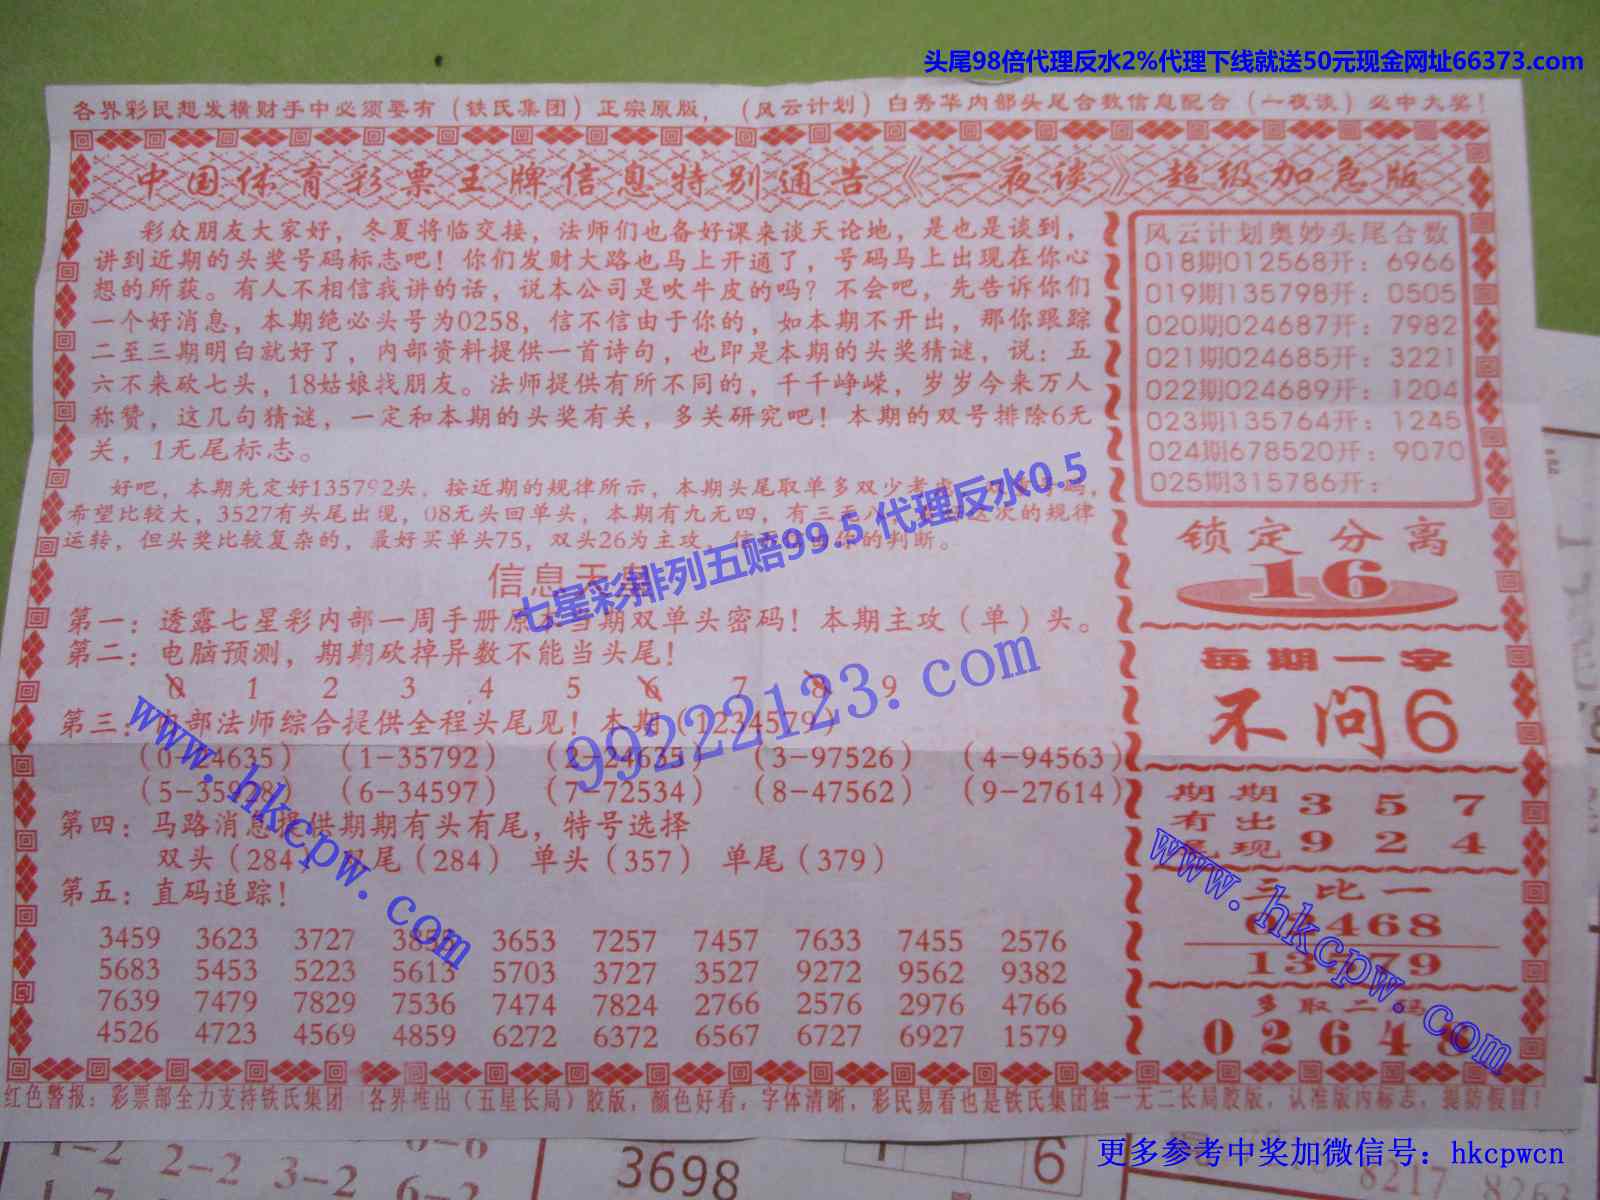 头尾98倍代理反水2%代理下线就送50元现金网址66373.com
各界彩民想发横财手中必须要有（铁氏集团）正宗原版，（风云计划）白秀华内部头尾合数信息配合（一夜谈）必中大奖！
中国体育彩票王牌信息特别通告《一夜谈》超级加急版
彩众朋友大家好，冬夏将临交接，法师们也备好课来谈天论地，是也是谈到，
讲到近期的头奖号码标志吧！你们发财大路也马上开通了，号码马上出现在你心
想的所获。有人不相信我讲的话，说本公司是吹牛皮的吗？不会吧，先告诉你们
一个好消息，本期绝必头号为0258，信不信由于你的，如本期不开出，那你跟踪
二至三期明白就好了，内部资料提供一首诗句，也即是本期的头奖猜谜，说：五
六不来砍七头，18姑娘找朋友。法师提供有所不同的，千千峥嵘，岁岁今来万人
称赞，这几句猜谜，一定和本期的头奖有关，多关研究吧！本期的双号排除6无
关，1无尾标志。
好吧，本期先定好135792头，按近期的规律所示，本期头尾取单多双少考
希望比较大，3527有头尾出现，08无头回单头，本期有九无四，有三无八 这次的规律
运转，但头奖比较复杂的，最好买单头75，双头26为主攻，信 你的判断。
信息天
七星彩排列五赔99.5 代理反水0.5
第一：透露七星彩内部一周手册原 当期双单头密码！本期主攻（单）头。
第二：电脑预测，期期砍掉异数不能当头尾！
0 1 2 3 4 5 6 7 8 9
99222123.com
第三：内部法师综合提供全程头尾见！本期（1234579）
（0-24635） （1-35792） （2-24635） （3-97526） （4-94563）
（5-359 8） （6-34597） （7-72534） （8-47562） （9-27614）
www.hkcpw.com
第四：马路消息提供期期有头有尾，特号选择
双头（284） 双尾（284） 单头（357） 单尾（379）
第五：直码追踪！
3459 3623 3727 3653 7257 7457 7633 7455 2576
5683 5453 5223 5613 5703 3727 3527 9272 9562 9382
7639 7479 7829 7536 7474 7824 2766 2576 2976 4766
4526 4723 4569 4859 6272 6372 6567 6727 6927 1579
风云计划奥妙头尾合数
018期012568开：6966
019期135798开：0505
020期024687开：7982
021期024685开：3221
022期024689开：1204
023期135764开：1245
024期678520开：9070
025期315786开：
锁定分离
16
每期一字
不问6
期期 3 5 7
有出
现 9 2 4
www.hkcpw.com
三比一
468
13 79
多取二码
0 2 6 4 8
红色警报：彩票部全力支持铁氏集团 各界推出（五星长局）胶版，颜色好看，字体清晰，彩民易看也是铁氏集团独一无二长局胶版，认准版内标志，提防假冒！
1-2 2-2 3-2 6-6
3698
6
8217
更多参考中奖加微信号：hkcpwcn